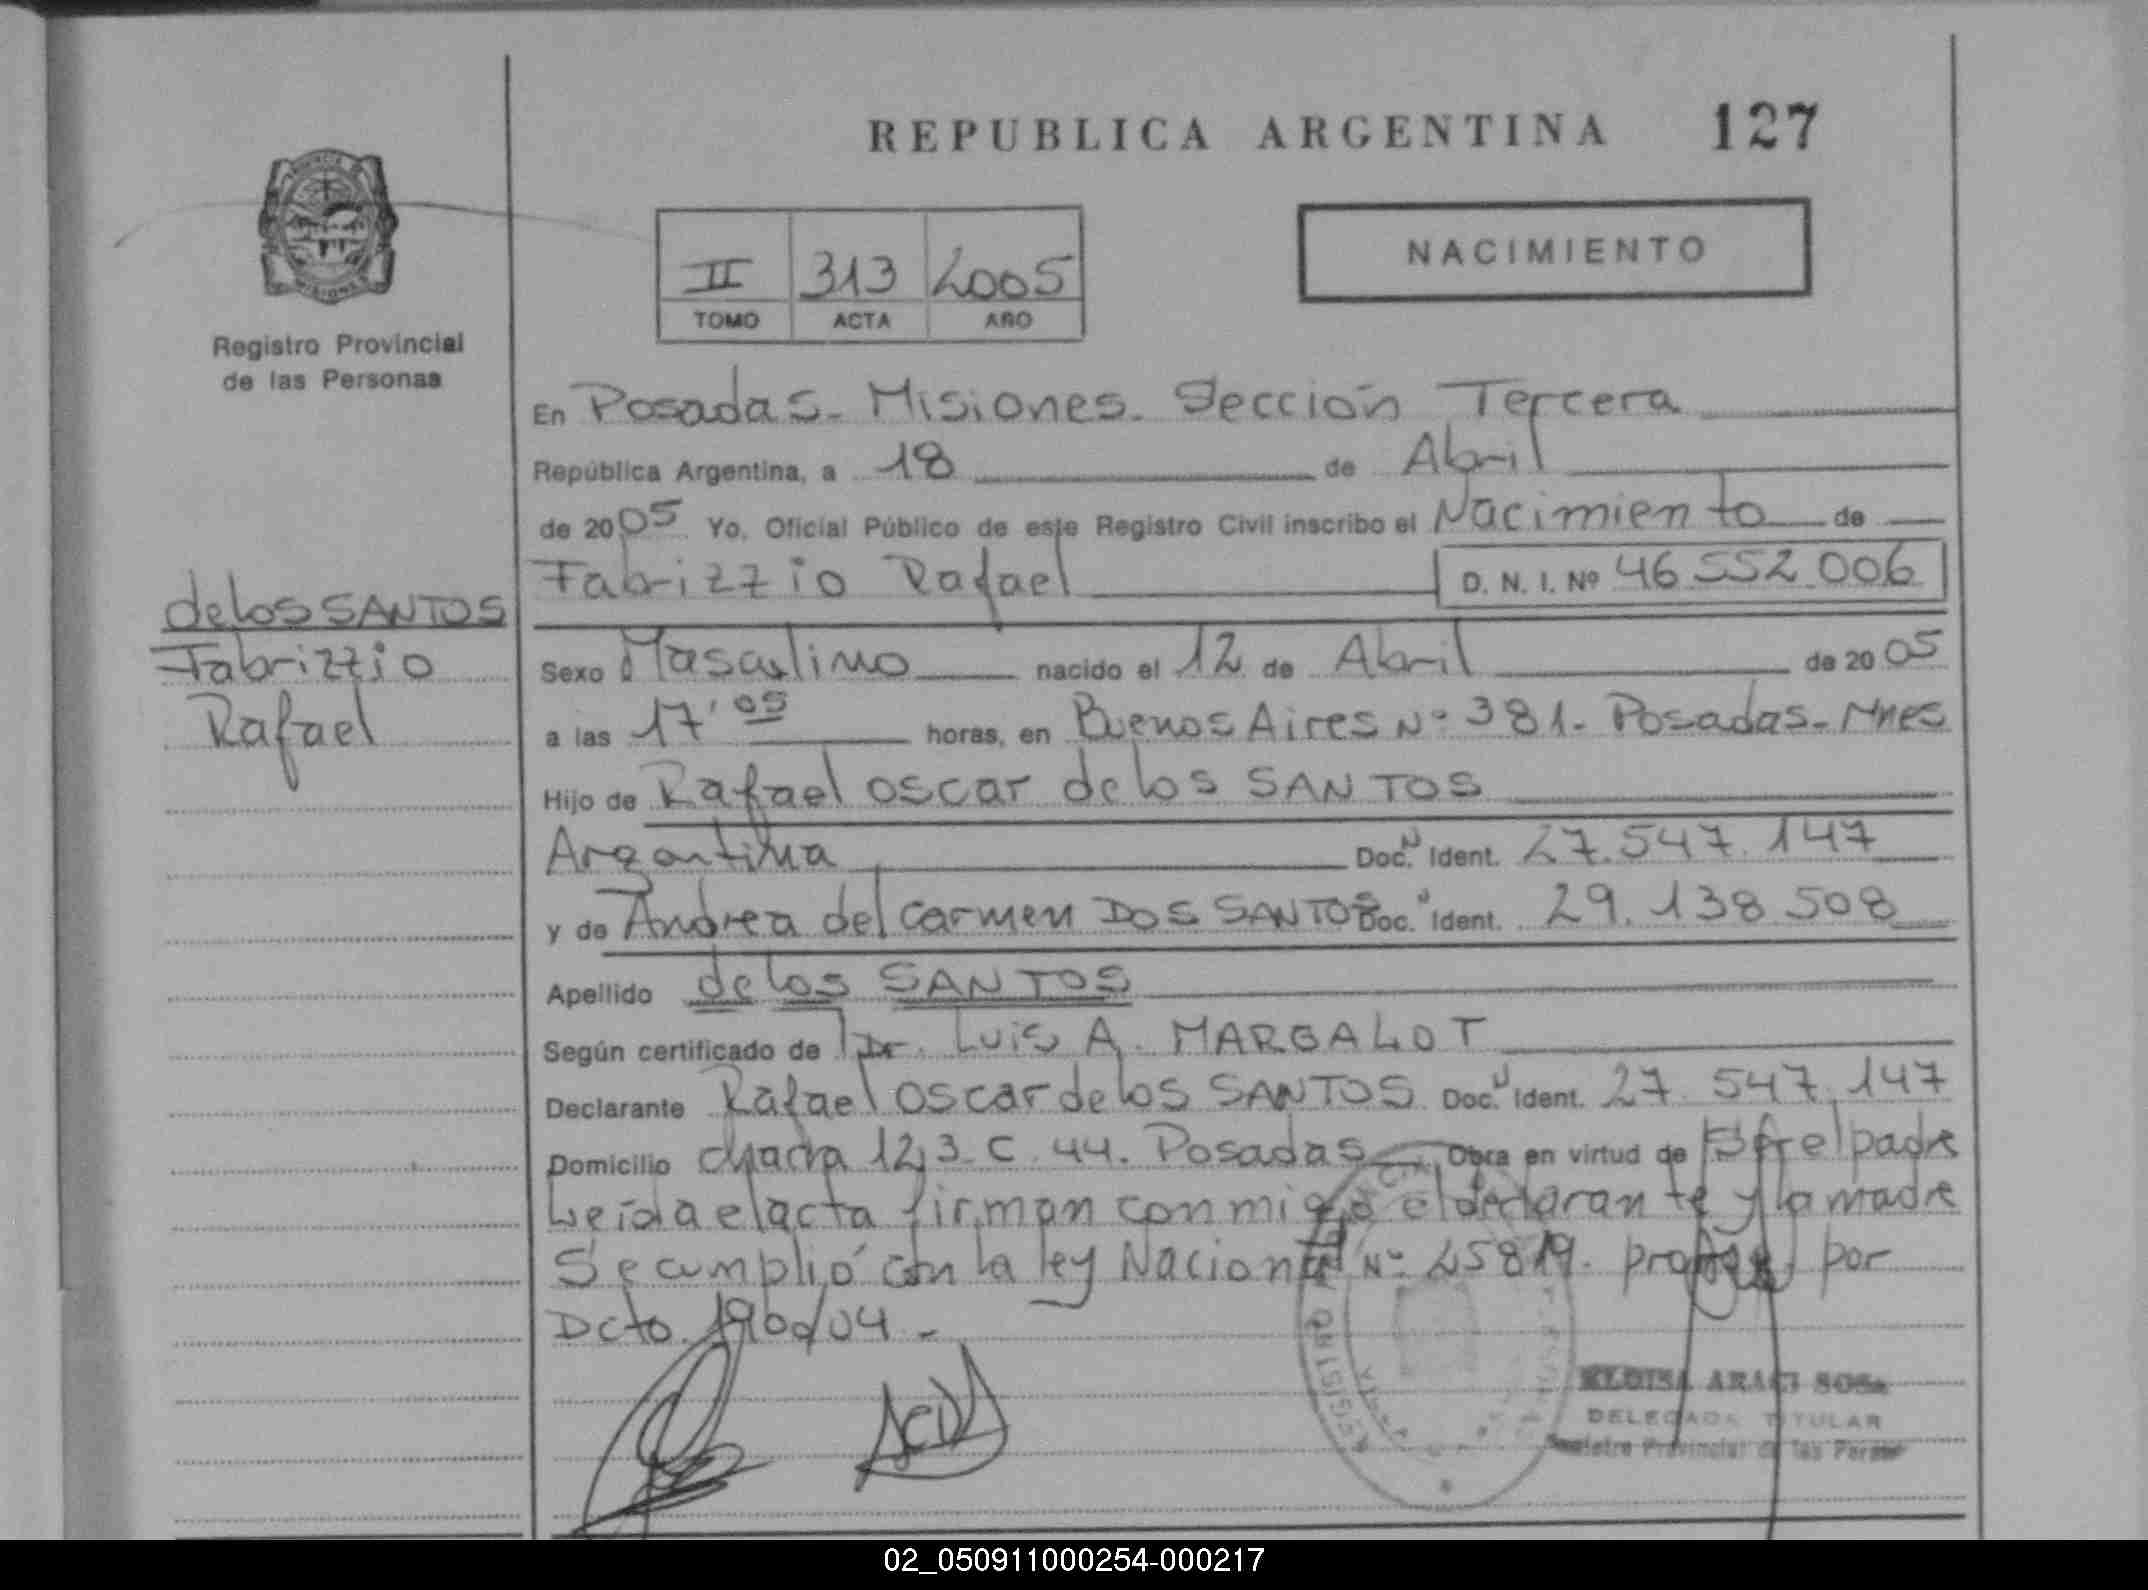 REPUBLICA ARGENTINA 127
NACIMIENTO
II 313 2005
TOMO ACTA AÑO
MISIONES
Registro Provincial
de las Personas
de los SANTOS
Fabrizzio
Rafael
En Posadas - Misiones - Sección Tercera
República Argentina, a 18 de Abril
de 2005 Yo, Oficial Público de este Registro Civil inscribo el Nacimiento de
Fabrizzio Rafael D. N. I. Nº 46 552 006
Sexo Masculino nacido el 12 de Abril de 2005
a las 17'05 horas, en Buenos Aires Nº 381 - Posadas - Mnes
Hijo de Rafael oscar de los SANTOS
Argentina Doc. Ident. 27.547.147
y de Andrea del carmen DOS SANTOS Doc. Ident. 29.138.508
Apellido de los SANTOS
Según certificado de Dr. Luis A. MARGALOT
Declarante Rafael oscar de los SANTOS Doc. Ident. 27.547.147
Domicilio chacra 123 C. 44. Posadas Obra en virtud de Ser el padre
Leída el acta firman conmigo el declarante y la madre
Se cumplió con la ley Nacional Nº 25819. por
Dcto.
REGISTRO
DELEGADA TITULAR
Registro Provincial de las
02_050911000254-000217